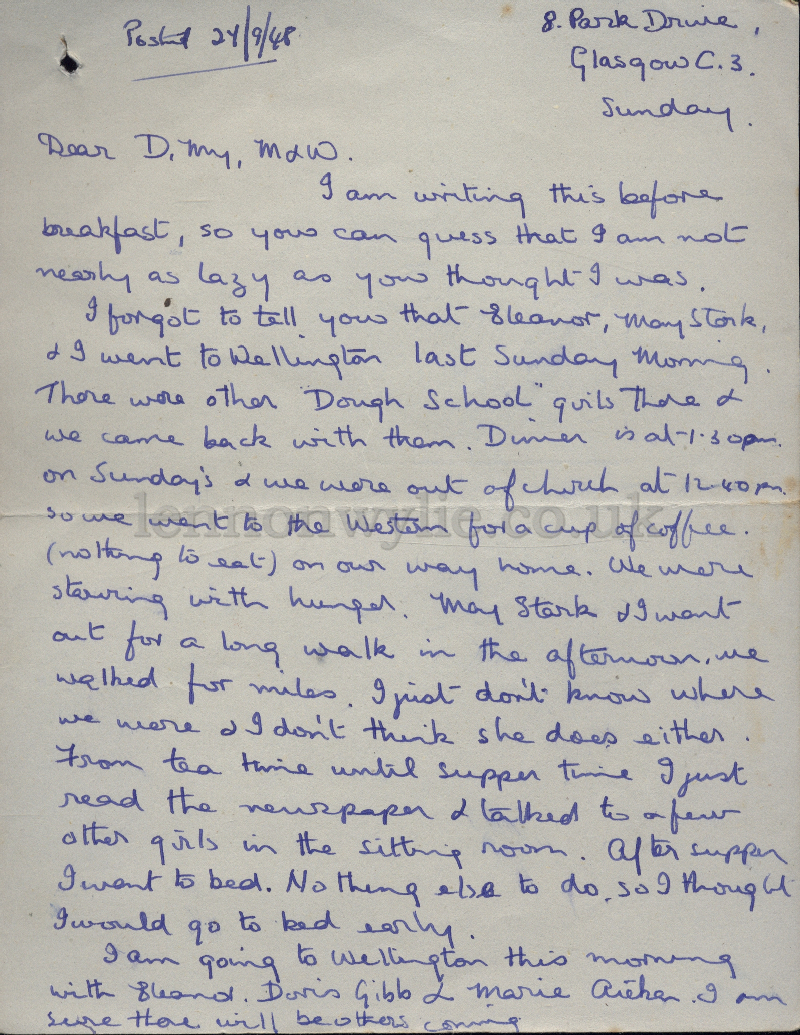 Posted 27/9/48
8. Park Drive,
Glasgow C.3.
Sunday.
Dear D, My, M & W.
I am writing this before
breakfast, so you can guess that I am not
nearly as lazy as you thought I was.
I forgot to tell you that Eleanor, May Stork,
& I went to Wellington last Sunday Morning.
There were other "Dough School" girls there &
we came back with them. Dinner is at 1.30pm.
on Sunday's & we were out of church at 12.40pm.
so we went to the Western for a cup of coffee.
(nothing to eat) on our way home. We were
starving with hunger. May Stork & I went
out for a long walk in the afternoon, we
walked for miles. I just don't know where
we were & I don't think she does either.
From tea time until supper time I just
read the newspaper & talked to a few
other girls in the sitting room. After supper
I went to bed. Nothing else to do, so I thought
I would go to bed early.
I am going to Wellington this morning
with Eleanor. Doris Gibb & Marie Aitken. I am
sure there will be others coming
lennonwylie.co.uk